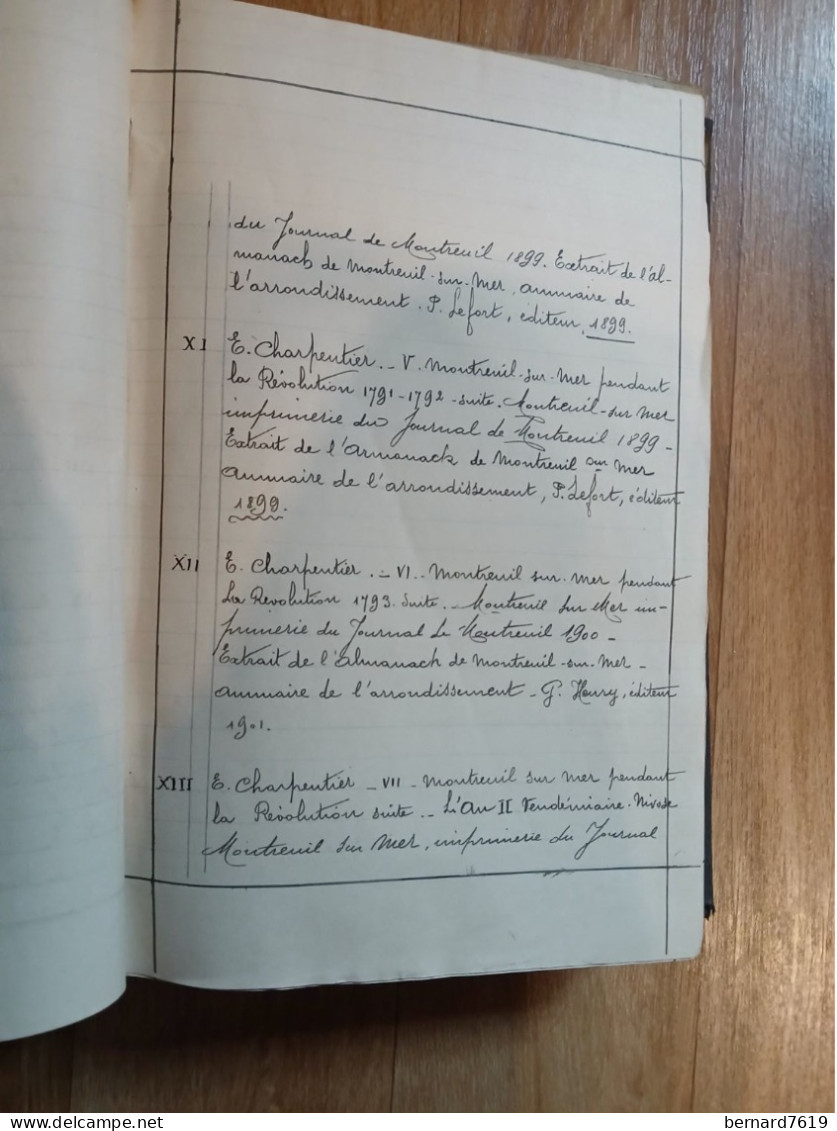 du Journal de Montreuil 1899. Extrait de l'al-
manach de Montreuil-sur-Mer. annuaire de
l'arrondissement. P. Lefort, éditeur, 1899.
XI E. Charpentier. _ V. Montreuil-sur-Mer pendant
la Révolution 1791-1792-suite. Montreuil-sur Mer
imprimerie du Journal de Montreuil 1899 -
Extrait de l'armanack de Montreuil sur Mer
annuaire de l'arrondissement, P. Lefort, éditeur
1899.
XII E. Charpentier. _ VI _ Montreuil sur. Mer pendant
La Revolution 1793. Suite. _ Montreuil sur Mer im-
primerie du Journal de Montreuil 1900 -
Extrait de l'almanach de Montreuil-sur-Mer -
annuaire de l'arrondissement - G. Henry, éditeur
1901.
XIII E. Charpentier _ VII _ Montreuil sur Mer pendant
la Révolution suite _ L'an II Vendémiaire. Nivose
Montreuil sur Mer, imprimerie du Journal
bernard7619